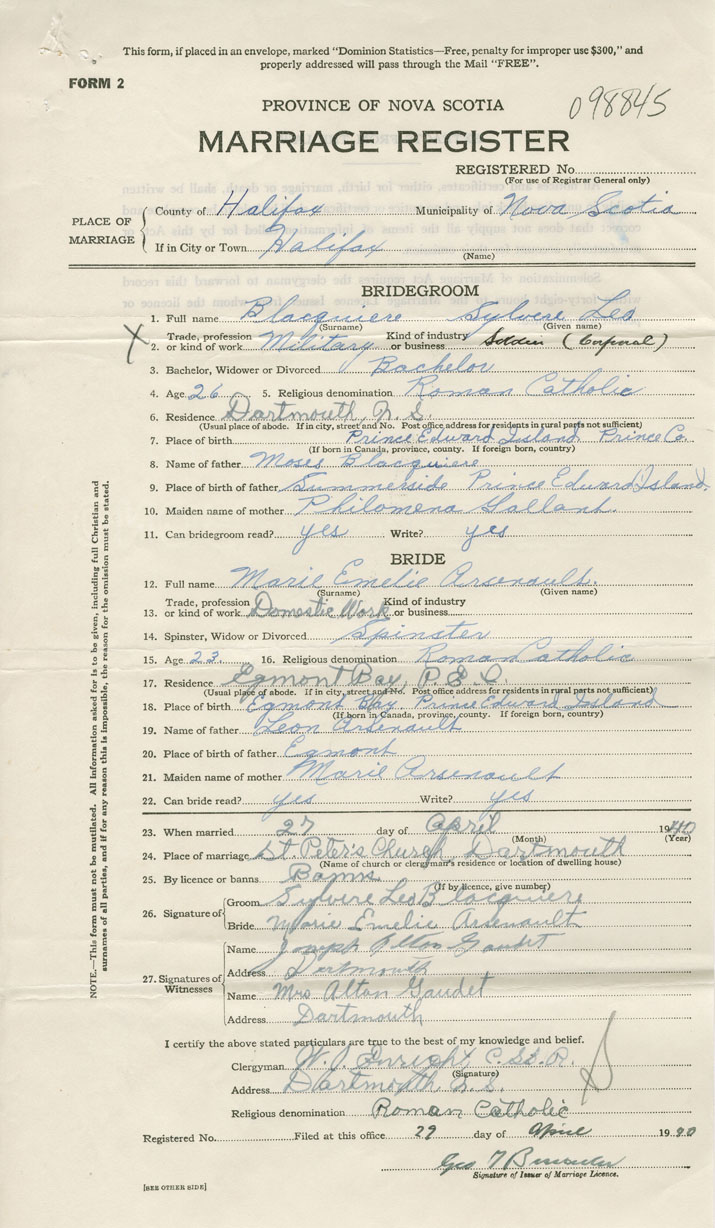 This form, if placed in an envelope, marked "Dominion Statistics—Free, penalty for improper use $300," and
properly addressed will pass through the Mail "FREE".
FORM 2
098845
PROVINCE OF NOVA SCOTIA
MARRIAGE REGISTER
REGISTERED No.
(For use of Registrar General only)
PLACE OF MARRIAGE
County of Halifax Municipality of Nova Scotia
If in City or Town Halifax
(Name)
BRIDEGROOM
1. Full name Blacquiere Sylvere Leo
(Surname) (Given name)
X
2. Trade, profession or kind of work Military Kind of industry or business Soldier (Corporal)
3. Bachelor, Widower or Divorced Bachelor
4. Age 26 5. Religious denomination Roman Catholic
6. Residence Dartmouth, N.S.
(Usual place of abode. If in city, street and No. Post office address for residents in rural parts not sufficient)
7. Place of birth Prince Edward Island Prince Co.
(If born in Canada, province, county. If foreign born, country)
8. Name of father Moses Blacquiere
9. Place of birth of father Summerside Prince Edward Island.
10. Maiden name of mother Philomena Gallant.
11. Can bridegroom read? yes Write? yes
BRIDE
12. Full name Marie Emelie Arsenault.
(Surname) (Given name)
13. Trade, profession or kind of work Domestic Work Kind of industry or business
14. Spinster, Widow or Divorced Spinster
15. Age 23. 16. Religious denomination Roman Catholic
17. Residence Egmont Bay, P.E.I.
(Usual place of abode. If in city, street and No. Post office address for residents in rural parts not sufficient)
18. Place of birth Egmont Bay Prince Edward Island
(If born in Canada, province, county. If foreign born, country)
19. Name of father Leon Arsenault
20. Place of birth of father Egmont
21. Maiden name of mother Marie Arsenault
22. Can bride read? yes Write? yes
23. When married 27 day of April 1940
(Month) (Year)
24. Place of marriage St Peter's Church Dartmouth
(Name of church or clergyman's residence or location of dwelling house)
25. By licence or banns Banns
(If by licence, give number)
26. Signature of
Groom Sylvere Leo Blacquiere
Bride Marie Emelie Arsenault
27. Signatures of Witnesses
Name Joseph Alton Gaudet
Address Dartmouth
Name Mrs Alton Gaudet
Address Dartmouth
I certify the above stated particulars are true to the best of my knowledge and belief.
Clergyman W. J. Enright C.Ss.R.
(Signature)
Address Dartmouth N.S.
Religious denomination Roman Catholic
Registered No. Filed at this office 29 day of April 1940
Geo T
Signature of Issuer of Marriage Licence.
[SEE OTHER SIDE]
NOTE.—This form must not be mutilated. All information asked for is to be given, including full Christian and
surnames of all parties, and if for any reason this is impossible, the reason for the omission must be stated.